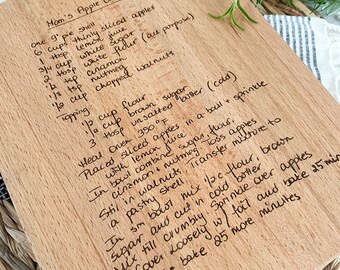 Mom's Apple
One 9" pie shell
6 cups thinly sliced apples
1 tbsp lemon juice
3/4 cup white sugar
2 tbsp white flour (all purpose)
1/2 tsp cinnamon
1/8 tsp nutmeg
1/2 cup chopped walnuts
Topping
1/2 cup flour
1/2 cup brown sugar
3 tbsp unsalted butter (cold)
Heat oven 390°F
Placed sliced apples in a bowl & sprinkle
with lemon juice
In bowl combine sugar, flour,
cinnamon & nutmeg. Toss apples
Stir in walnuts. Transfer mixture to
a pastry shell
In sm bowl mix flour, brown
sugar and cut in cold butter
Mix till crumbly. Sprinkle over apples
Cover loosely w/ foil and bake 25 min
bake 25 more minutes